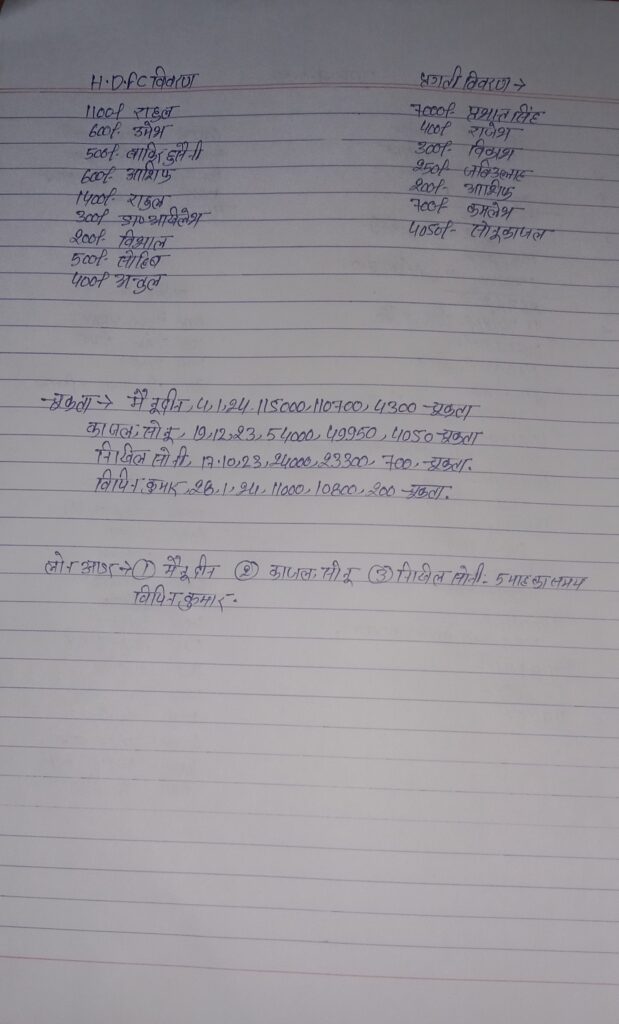 H.D.FC विवरण
1100/- राहुल
600/- उमेश
500/- साकिर हुसैनी
600/- आशिफ
1400/- राहुल
300/- डा० अखिलेश
200/- विशाल
500/- सोहिब
400/- अतुल
प्रगती विवरण →
7000/- प्रभात सिंह
400/- राजेश
300/- विक्रम
250/-
200/- आशिफ
700/- कमलेश
4050/- सोनू काजल
चुकता → मैनूद्दीन, 4,1,24, 115000, 110700, 4300 चुकता
काजल, सोनू, 19,12,23, 54000, 49950, 4050 चुकता
निखिल सोनी, 17.10,23, 24000, 23300, 700, चुकता.
विपिन कुमार, 26,1,24, 11000, 10800, 200 चुकता.
लोन आउट → ① मैनूद्दीन ② काजल, सोनू ③ निखिल सोनी - 5 माह का समय
विपिन कुमार.